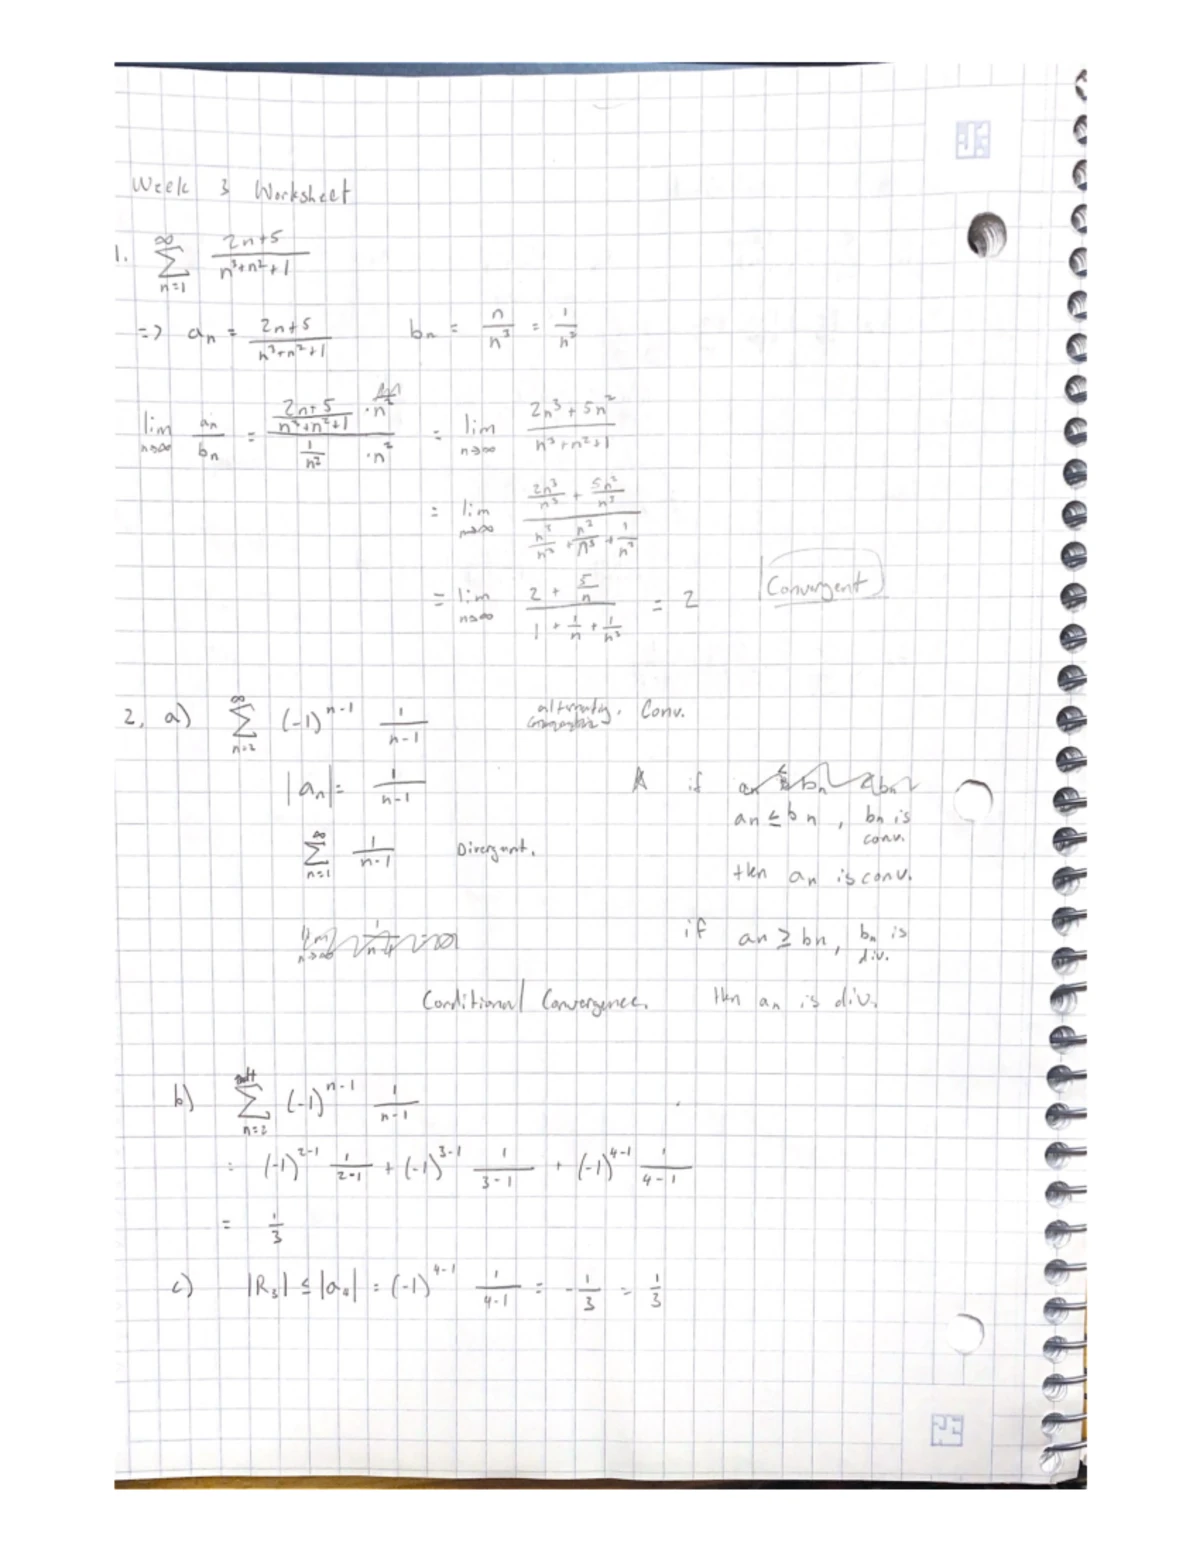 Week 3 Worksheet
1. ∞ Σ n=1 (2n+5)/(n³+n²+1)
=> an = (2n+5)/(n³+n²+1) bn = n/n³ = 1/n²
lim n→∞ an/bn = ((2n+5)/(n³+n²+1) · n²)/(1/n² · n²) = lim n→∞ (2n³+5n²)/(n³+n²+1)
= lim n→∞ (2n³/n³ + 5n²/n³)/(n³/n³ + n²/n³ + 1/n³)
= lim n→∞ (2 + 5/n)/(1 + 1/n + 1/n³) = 2 Convergent
2. a) ∞ Σ n=2 (-1)^(n-1) 1/(n-1) alternating. Conv.
|an| = 1/(n-1) if
an ≤ bn, bn is conv.
∞ Σ n=1 1/(n-1) Divergent.
then an is conv.
if an ≥ bn, bn is div.
Conditional Convergence. then an is div.
b) Σ n=2 (-1)^(n-1) 1/(n-1)
= (-1)^(2-1) 1/(2-1) + (-1)^(3-1) 1/(3-1) + (-1)^(4-1) 1/(4-1)
= 1/3
c) |R₃| ≤ |a₄| = (-1)^(4-1) 1/(4-1) = -1/3 = 1/3